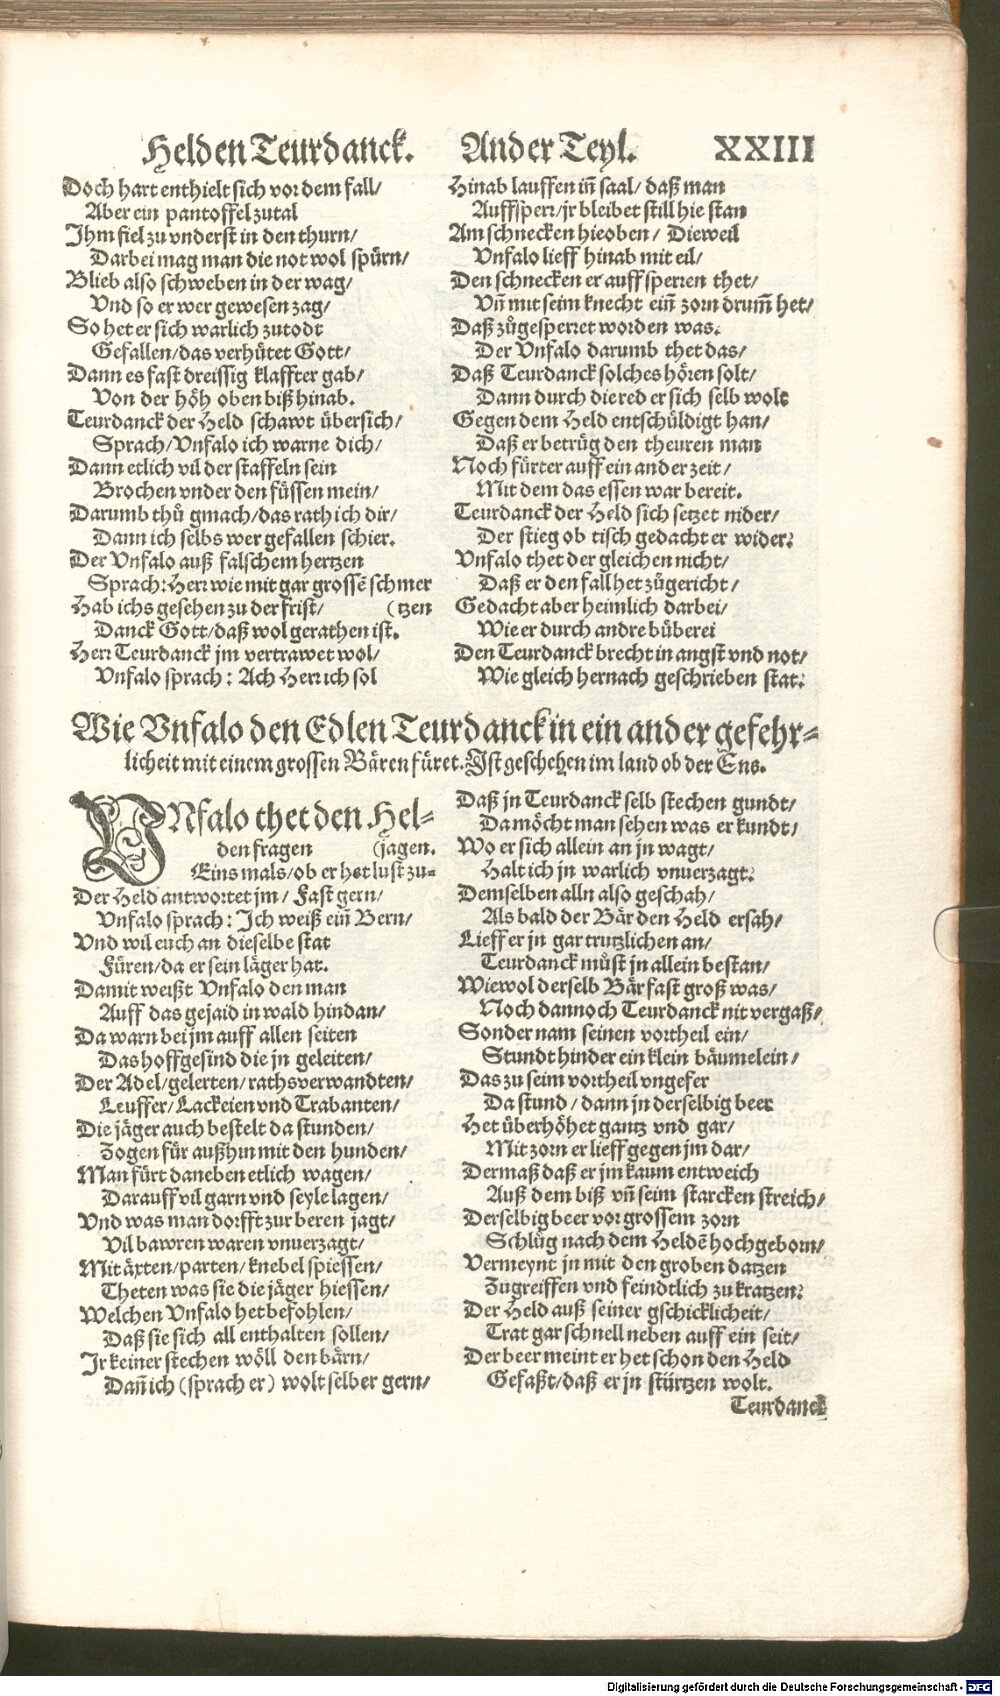 Helden Teurdanck. Ander Teyl. XXIII
Doch hart enthielt sich vor dem fall/
Aber ein pantoffel zutal
Ihm fiel zu vnderst in den thurn/
Darbei mag man die not wol spürn/
Blieb also schweben in der wag/
Vnd so er wer gewesen zag/
So het er sich warlich zutodt
Gefallen/das verhütet Gott/
Dann es fast dreissig klaffter gab/
Von der höh oben biß hinab.
Teurdanck der Held schawt übersich/
Sprach/Vnfalo ich warne dich/
Dann etlich vil der staffeln sein
Brochen vnder den füssen mein/
Darumb thů gmach/das rath ich dir/
Dann ich selbs wer gefallen schier.
Der Vnfalo auß falschem hertzen
Sprach: Herr wie mit gar grossē schmer
Hab ichs gesehen zu der frist/ (tzen
Danck Gott/daß wol gerathen ist.
Herr Teurdanck jm vertrawet wol/
Vnfalo sprach: Ach Herr ich sol
Hinab lauffen iñ saal/ daß man
Auffsperr/jr bleibet still hie stan
Am schnecken hieoben/ Dieweil
Vnfalo lieff hinab mit eil/
Den schnecken er auffsperren thet/
Vñ mit seim knecht eiñ zorn drum̃ het/
Daß zůgesperret worden was.
Der Vnfalo darumb thet das/
Daß Teurdanck solches hören solt/
Dann durch die red er sich selb wolt
Gegen dem Held entschüldigt han/
Daß er betrüg den theuren man
Noch fürter auff ein ander zeit/
Mit dem das essen war bereit.
Teurdanck der Held sich setzet nider/
Der stieg ob tisch gedacht er wider:
Vnfalo thet der gleichen nicht/
Daß er den fall het zůgericht/
Gedacht aber heimlich darbei/
Wie er durch andre büberei
Den Teurdanck brecht in angst vnd not/
Wie gleich hernach geschrieben stat:
Wie Vnfalo den Edlen Teurdanck in ein ander gefehr-
licheit mit einem grossen Bären füret. Ist geschehen im land ob der Ens.
VNfalo thet den Hel-
den fragen (jagen.
Eins mals/ob er het lust zu-
Der Held antwortet jm/ Fast gern/
Vnfalo sprach: Ich weiß eiñ Bern/
Vnd wil euch an dieselbe stat
Füren/da er sein läger hat.
Damit weißt Vnfalo den man
Auff das gejaid in wald hindan/
Da warn bei jm auff allen seiten
Das hoffgesind die jn geleiten/
Der Adel/gelerten/rathsverwandten/
Leuffer/Lackeien vnd Trabanten/
Die jäger auch bestelt da stunden/
Zogen für außhin mit den hunden/
Man fürt daneben etlich wagen/
Darauff vil garn vnd seyle lagen/
Vnd was man dorfft zur beren jagt/
Vil bawren waren vnuerzagt/
Mit äxten/parten/knebel spiessen/
Theten was sie die jäger hiessen/
Welchen Vnfalo het befohlen/
Daß sie sich all enthalten sollen/
Ir keiner stechen wöll den bärn/
Dañ ich (sprach er) wolt selber gern/
Daß jn Teurdanck selb stechen gundt/
Da möcht man sehen was er kundt/
Wo er sich allein an jn wagt/
Halt ich jn warlich vnuerzagt:
Demselben alln also geschah/
Als bald der Bär den Held ersah/
Lieff er jn gar trutzlichen an/
Teurdanck můst jn allein bestan/
Wiewol derselb Bär fast groß was/
Noch dannoch Teurdanck nit vergaß/
Sonder nam seinen vortheil ein/
Stundt hinder ein klein bäumelein/
Das zu seim vortheil vngefer
Da stund/ dann jn derselbig beer
Het überhöhet gantz vnd gar/
Mit zorn er lieff gegen jm dar/
Dermaß daß er jm kaum entweich
Auß dem biß vñ seim starcken streich/
Derselbig beer vor grossem zorn
Schlůg nach dem Heldē hochgeborn/
Vermeynt jn mit den groben datzen
Zugreiffen vnd feindtlich zu kratzen:
Der Held auß seiner gschicklicheit/
Trat gar schnell neben auff ein seit/
Der beer meint er het schon den Held
Gefaßt/daß er jn stürtzen wolt.
Teurdanck
Digitalisierung gefördert durch die Deutsche Forschungsgemeinschaft - DFG